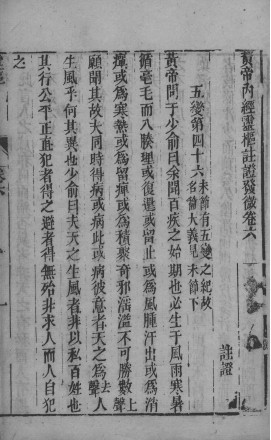 黃帝內經靈樞註證發微卷六
註證
五變第四十六 末節有五變之紀故名篇大義見末節下
黃帝問于少俞曰余聞百疾之始期也必生于風雨寒暑
循毫毛而入腠理或復還或留止或爲風腫汗出或爲消
癉或爲寒熱或爲留痹或爲積聚奇邪淫溢不可勝數上聲
願聞其故夫同時得病或病此或病彼意者天之爲人去聲
生風乎何其異也少俞曰夫天之生風者非以私百姓也
其行公平正直犯者得之避者得無殆非求人而人自犯
之